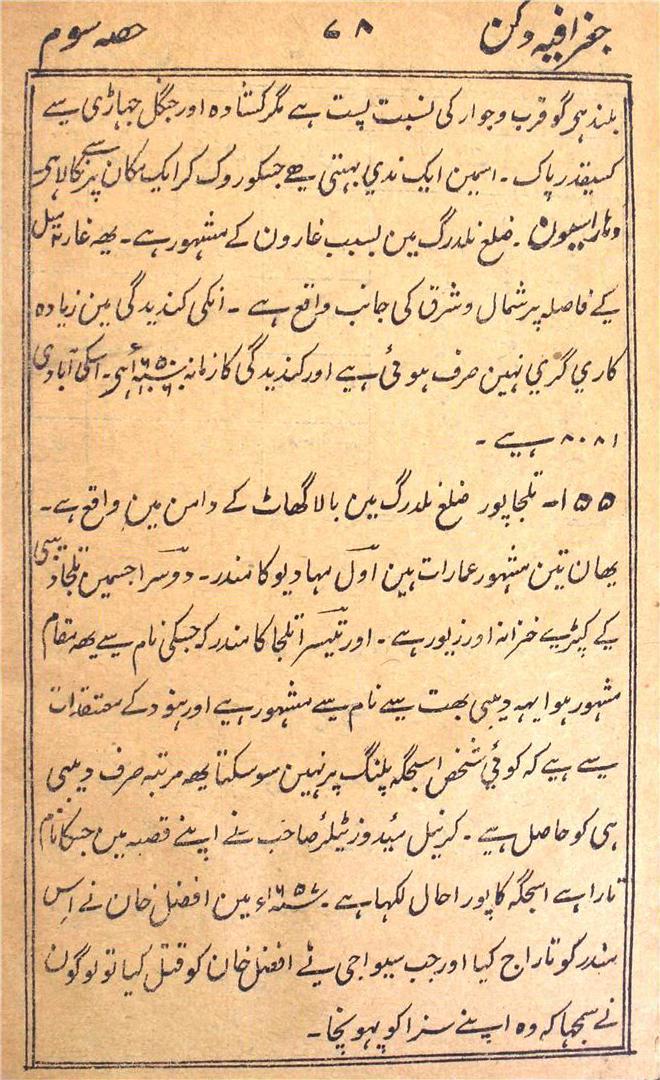 جغرافیہ دکن ۶۸ حصہ سوم
بلند ہی گو قرب و جوار کی نسبت پست ہے مگر کشادہ اور جنگل جھاڑی سے
کسیقدر پاک ۔ اسمین ایک ندی بہتی ھے جسکو روک کر ایک مکان پر سے نکالا ہی۔
دھاراسیون ۔ ضلع نلدرگ مین بسبب غارون کے مشہور ہے ۔ یھہ غار ۲ میل
کے فاصلہ پر شمال و شرق کی جانب واقع ہے ۔ انکی کندیدگی مین زیادہ
کاری گری نہین صرف ہوئی ہے اور کندیدگی کا زمانہ ۶۵۰ء ہی۔ اسکی آبادی
۸۰۸۱ ہے ۔
۱۵۵۔ تلجاپور ضلع نلدرگ مین بالاگھاٹ کے دامن مین واقع ہے ۔
یھان تین مشہور عمارات ہین اول مہادیو کا مندر ۔ دوسرا جسمین تلجا دیبی
کے کپڑے خزانہ اور زیور ہے ۔ اور تیسرا تلجا کا مندر کہ جسکی نام سے یھہ مقام
مشہور ہوا یہہ دیبی بھت سے نام سے مشہور ہے اور ہنود کے معتقدات
سے ہے کہ کوئی شخص اسجگہ پلنگ پر نہین سو سکتا یھہ مرتبہ صرف دیبی
ہی کو حاصل ہے ۔ کرنیل میڈوز ٹیلر صاحب نے اپنے قصہ مین جسکا نام
تارا ہے اسجگہ کا پورا حال لکھا ہے ۔ ۱۶۵۷ء مین افضل خان نے اس
مندر کو تاراج کیا اور جب سیواجی نے افضل خان کو قتل کیا تو لوگون
نے سمجھا کہ وہ اپنے سزا کو پہونچا ۔